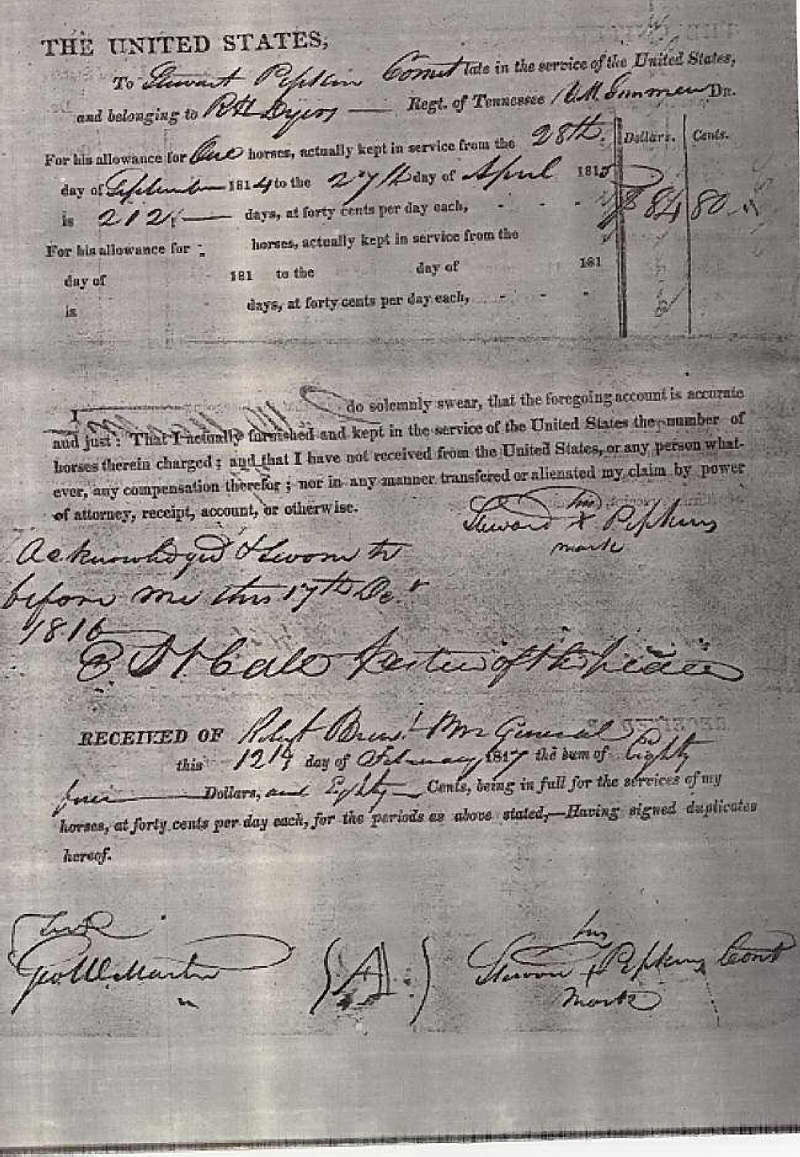 THE UNITED STATES,
To Stewart Pipkin Cornet late in the service of the United States,
and belonging to R H Dyers Regt. of Tennessee Dr.
For his allowance for One horses, actually kept in service from the 28th Dollars. Cents.
day of September 1814 to the 27th day of April 1815
is 212 days, at forty cents per day each, - - - $ 84 80
For his allowance for horses, actually kept in service from the
day of 181 to the day of 181
is days, at forty cents per day each, - - -
I do solemnly swear, that the foregoing account is accurate
and just: That I actually furnished and kept in the service of the United States the number of
horses therein charged; and that I have not received from the United States, or any person what-
ever, any compensation therefor; nor in any manner transfered or alienated my claim by power
of attorney, receipt, account, or otherwise.
his
Steward X Pipkins
mark
Acknowledged & Sworn to
before me this 17th Dec.r
1816
Justice of the peace
RECEIVED OF Robert General
this 12th day of February 1817 the sum of Eighty
four Dollars, and Eighty Cents, being in full for the services of my
horses, at forty cents per day each, for the periods as above stated,—Having signed duplicates
hereof.
Test
Geo. W. Martin
(A)
his
Steward X Pipkins Cornt
mark